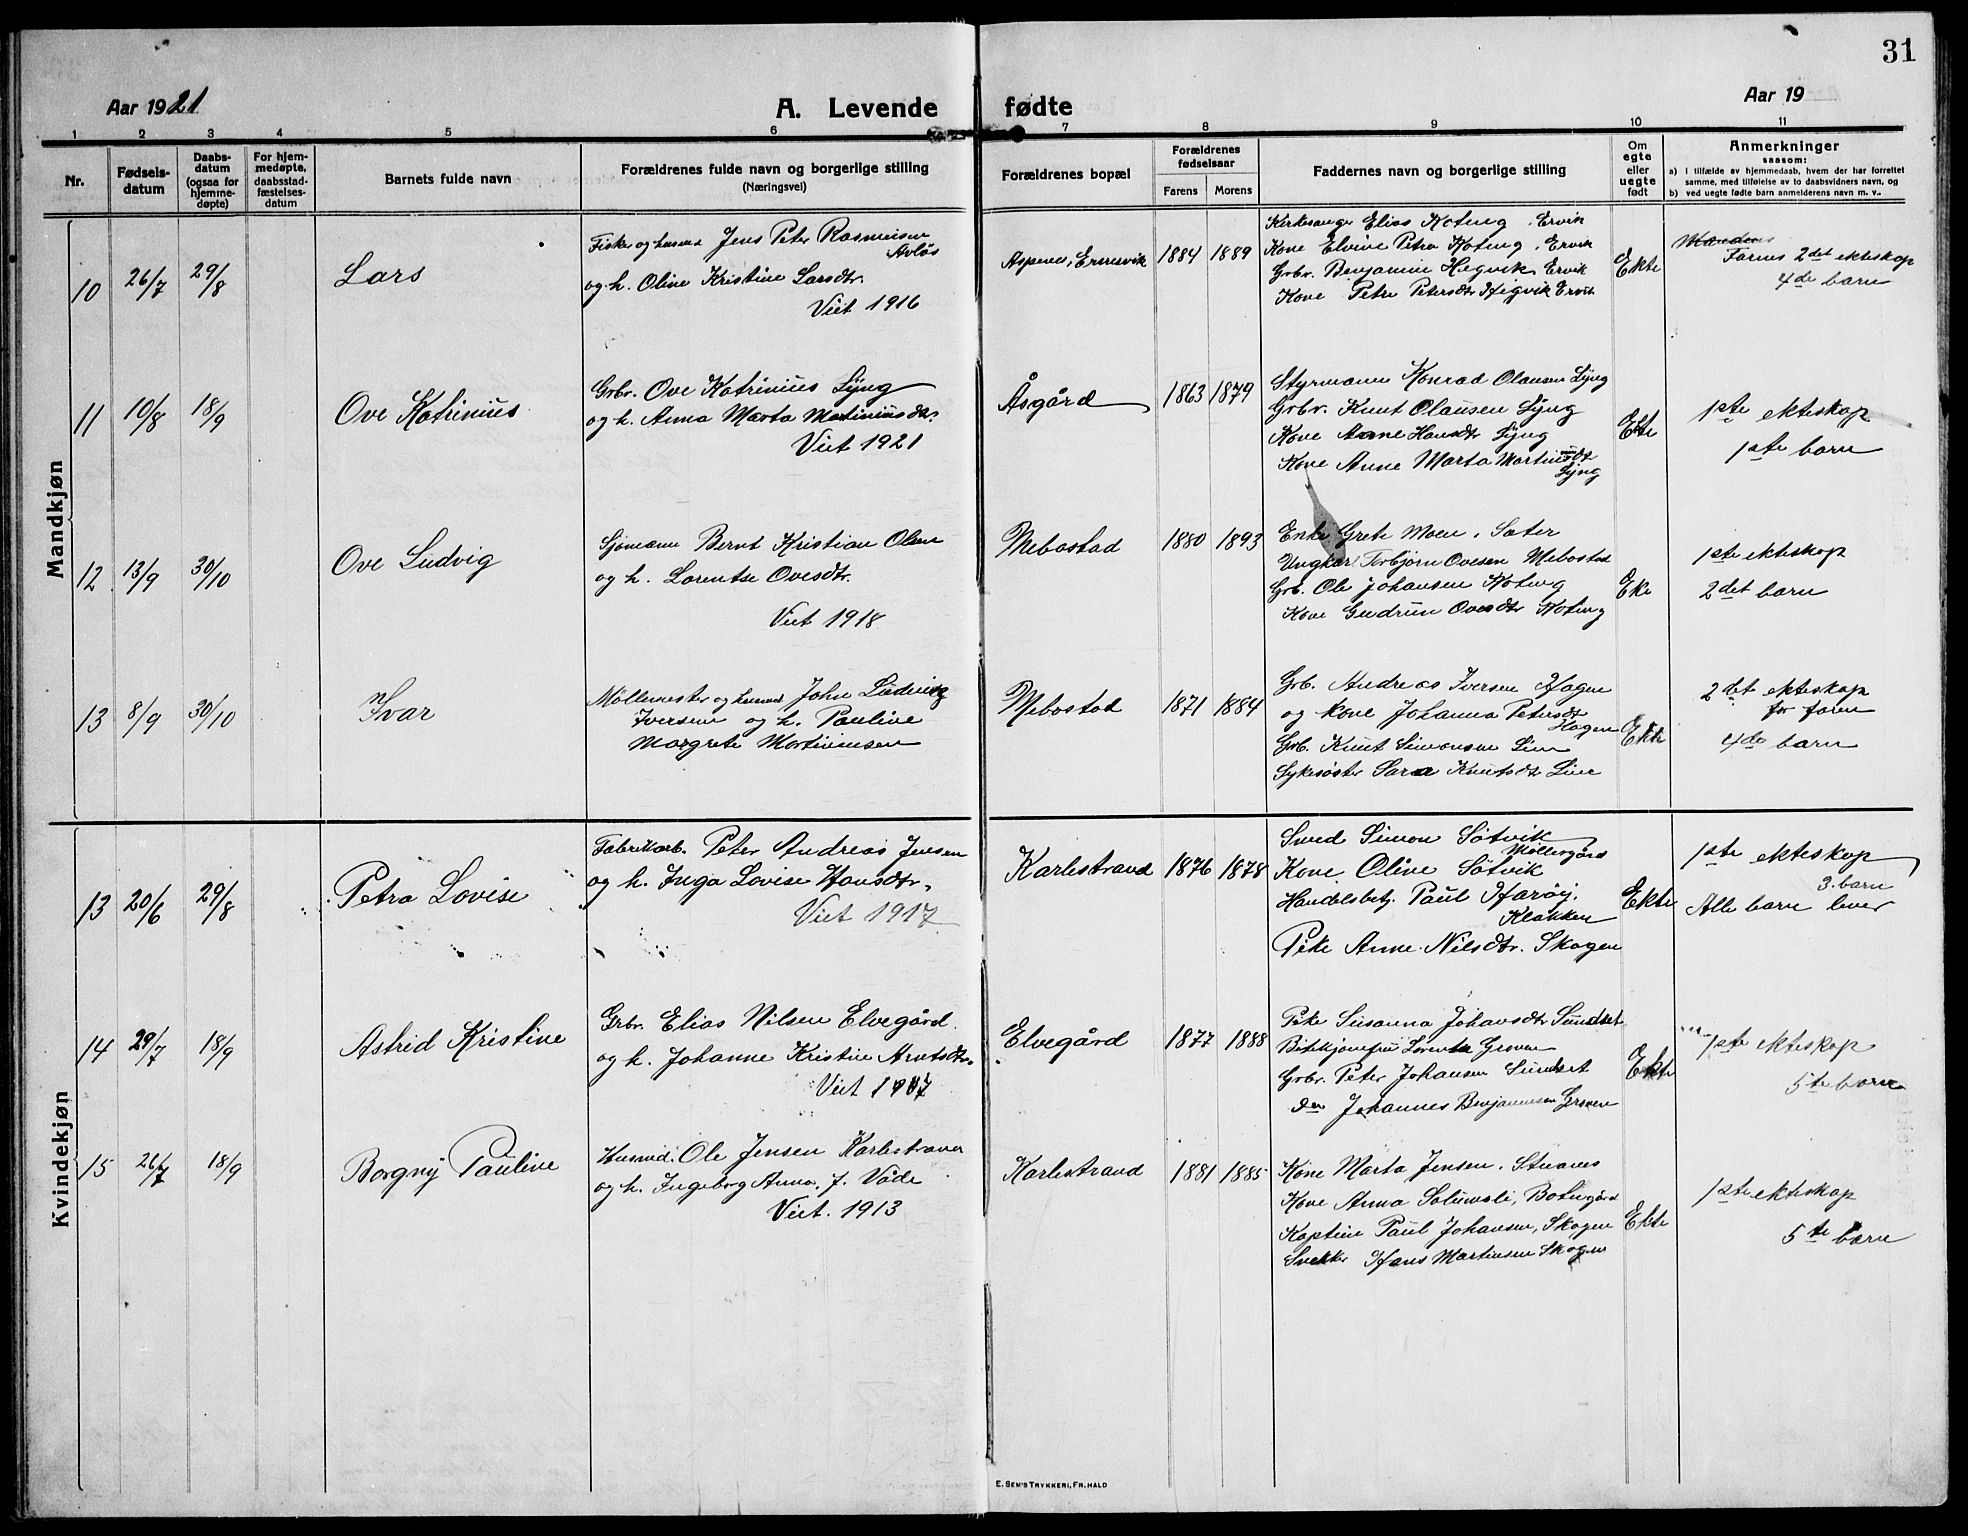 31
Aar 1921
A. Levende fødte
Aar 19
1 2 3 4 5 6 7 8 9 10 11
Nr.
Fødsels-
datum
Daabs-
datum
(ogsaa for
hjemme-
døpte)
For hjem-
medøpte,
daabsstad-
fæstelses-
datum
Barnets fulde navn
Forældrenes fulde navn og borgerlige stilling
(Næringsvei)
Forældrenes bopæl
Forældrenes
fødselsaar
Farens Morens
Faddernes navn og borgerlige stilling
Om
egte
eller
uegte
født
Anmerkninger
saasom:
a) I tilfælde av hjemmedaab, hvem der har forrettet
samme, med tilføielse av to daabsvidners navn, og
b) ved uegte fødte barn anmelderens navn m. v..
Mandkjøn
10 26/7 29/8 Lars
Fisker og husmd Jens Peter Rasmussen
Avløs
og h. Oline Kristine Larsdtr.
Viet 1916
Aspenes, 1884 1889
Kirkesanger Elias Koteng, Ervik
Kone Elvine Petra Koteng, Ervik
Grbr. Benjamin Hegvik Ervik
Kone Petra Petersdtr Hegvik Ervik
Ekte
Farens 2det ekteskap
4de barn
11 10/8 18/9 Ove Katrinius
Grbr. Ove Katrinius Lyng
og h. Anna Marta Martiniusdtr.
Viet 1921
Åsgård 1863 1879
Styrmann Konrad Olausen Lyng
Grbr. Knut Olausen Lyng
Kone Anne Hansdtr Lyng
Kone Anne Marta Martinusdtr
Lyng
Ekte
1ste ekteskap
1ste barn
12 13/9 30/10 Ove Ludvig
Sjømann Bernt Kristian Olsen
og h. Lorentse Ovesdtr.
Viet 1918
Mebostad 1880 1893
Enke Grete Moen, Sæter
Ungkar Torbjørn Ovesen Mebostad
Grb. Ole Johansen Koteng
Kone Gudrun Ovesdtr Koteng
Eke
1ste ekteskap
2det barn
13 8/9 30/10 Ivar
Møllemester og husmd John Ludvig
Iversen og h. Pauline
Margrete Martinussen
Mebostad 1871 1884
Grb. Andreas Iversen Hagen
og kone Johanna Petersdtr
Hagen
Grb. Knut Simonsen Lien
Sykesøster Sara Knutsdtr Lien
Ekte
2det ekteskap
for faren
4de barn
Kvindekjøn
13 20/6 29/8 Petra Lovise
Fabrikarb. Peter Andreas Jensen
og h. Inga Lovise Hansdtr.
Viet 1917
Karlestrand 1876 1878
Smed Simon Søtvik
Møllergård
Kone Oline Søtvik
Handelsbetj. Paul Harøy,
Klakken
Pike Anne Nilsdtr. Skogen
Ekte
1ste ekteskap
3. barn
Alle barn lever
14 29/7 18/9 Astrid Kristine
Grbr. Elias Nilsen Elvegård.
og h. Johanne Kristine Arntsdtr.
Viet 1907
Elvegård 1877 1888
Pike Susanna Johansdtr Sundset
Grbr. Peter Johansen Sundset
Do Johannes Benjaminsen Groven
Ekte
1ste ekteskap
5te barn
15 26/7 18/9 Borgny Pauline
Husmd. Ole Jensen Karlestrand
og h. Ingeborg Anna, f. Våde
Viet. 1913
Karlestrand 1881 1885
Kone Marta Jensen,
Kone Anna Solumsli, Botngård
Kaptein Paul Johansen, Skogen
Snekker Hans Martinsen Skogen
Ekte
1ste ekteskap
5te barn
E. SEM'S TRYKKERI, FR.HALD